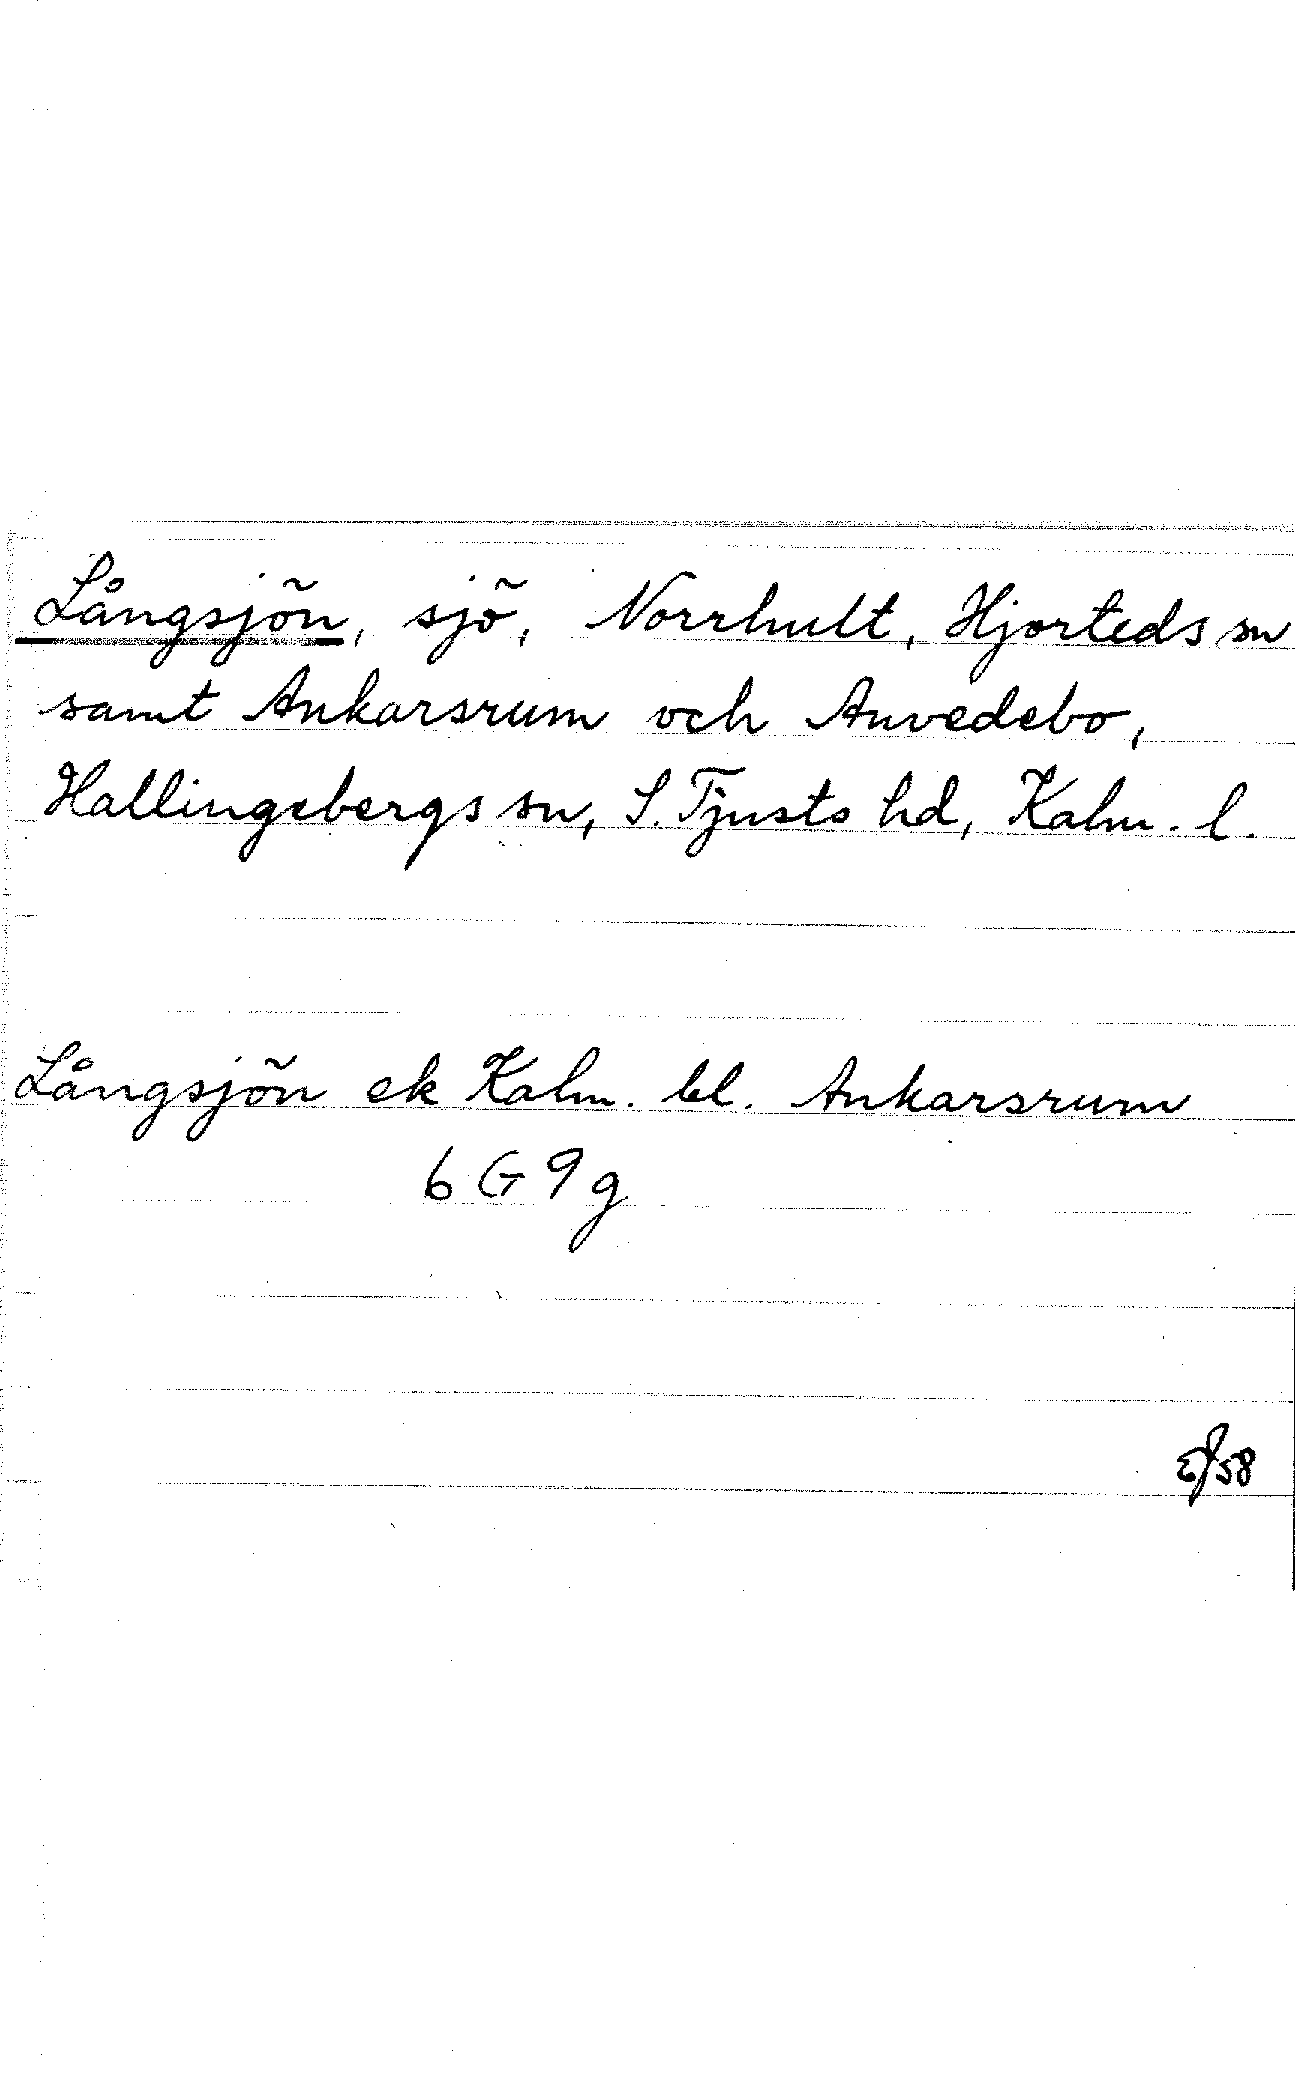 Långsjön, sjö, Norrhult, Hjorteds sn
samt Ankarsrum och Anvedebo,
Hallingebergs sn, S. Tjusts hd, Kalm. l.
Långsjön ek Kalm. bl. Ankarsrum
6 G 9 g